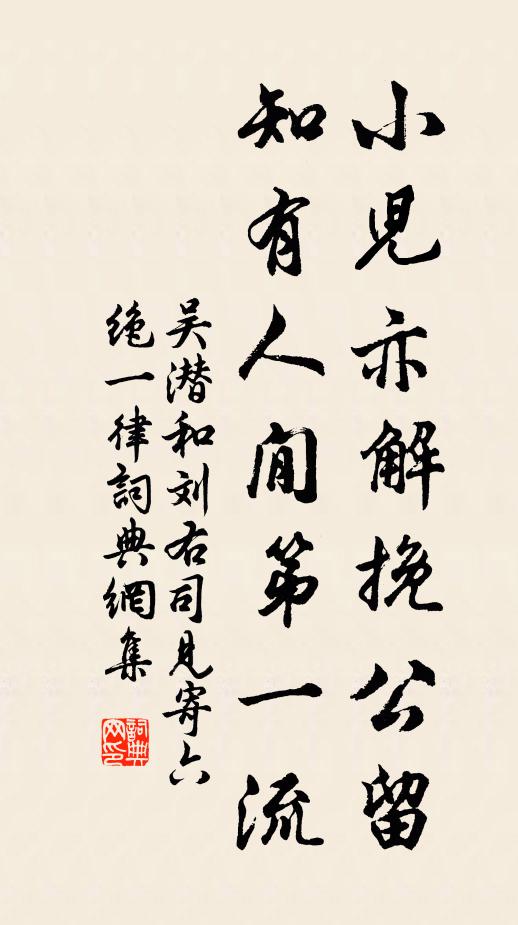 小児亦解挽公留
知有人间第一流
吴潜和刘右司见寄六
绝一律詞典網集
詞典网印